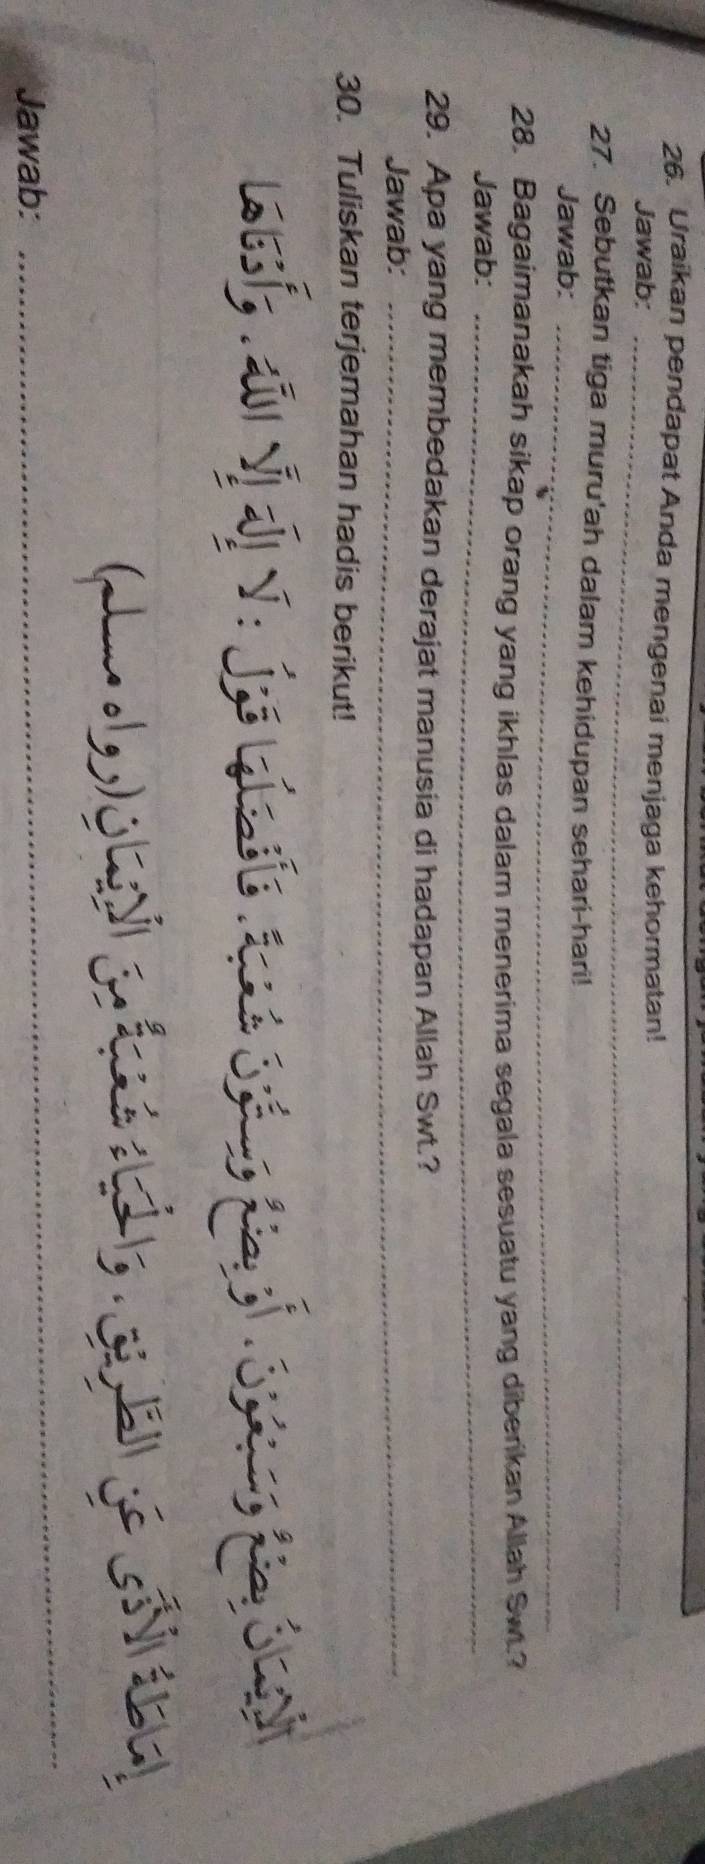 26. Uraikan pendapat Anda mengenai menjaga kehormatan!
Jawab:
27. Sebutkan tiga muru'ah dalam kehidupan sehari-hari!
Jawab:
28. Bagaimanakah sikap orang yang ikhlas dalam menerima segala sesuatu yang diberikan Allah Swt.?
Jawab:
29. Apa yang membedakan derajat manusia di hadapan Allah Swt.?
Jawab:
30. Tuliskan terjemahan hadis berikut!
الْإِيْمَانُ بِضْعٌ وَسَبْعُوْنَ، أَوْ بِضْعٌ وَسِتُّوْنَ شُعْبَةً، فَأَفْضَلُهَا قَوْلُ: لَا إِلَهَ إِلَّا اللّٰهُ، وَأَدْنَاهَا
إِمَاطَةُ الْأَذَى عَنِ الطَّرِيْقِ، وَالْحَيَاءُ شُعْبَةٌ مِنَ الْإِيْمَانِ (رواه مسلم)
Jawab: